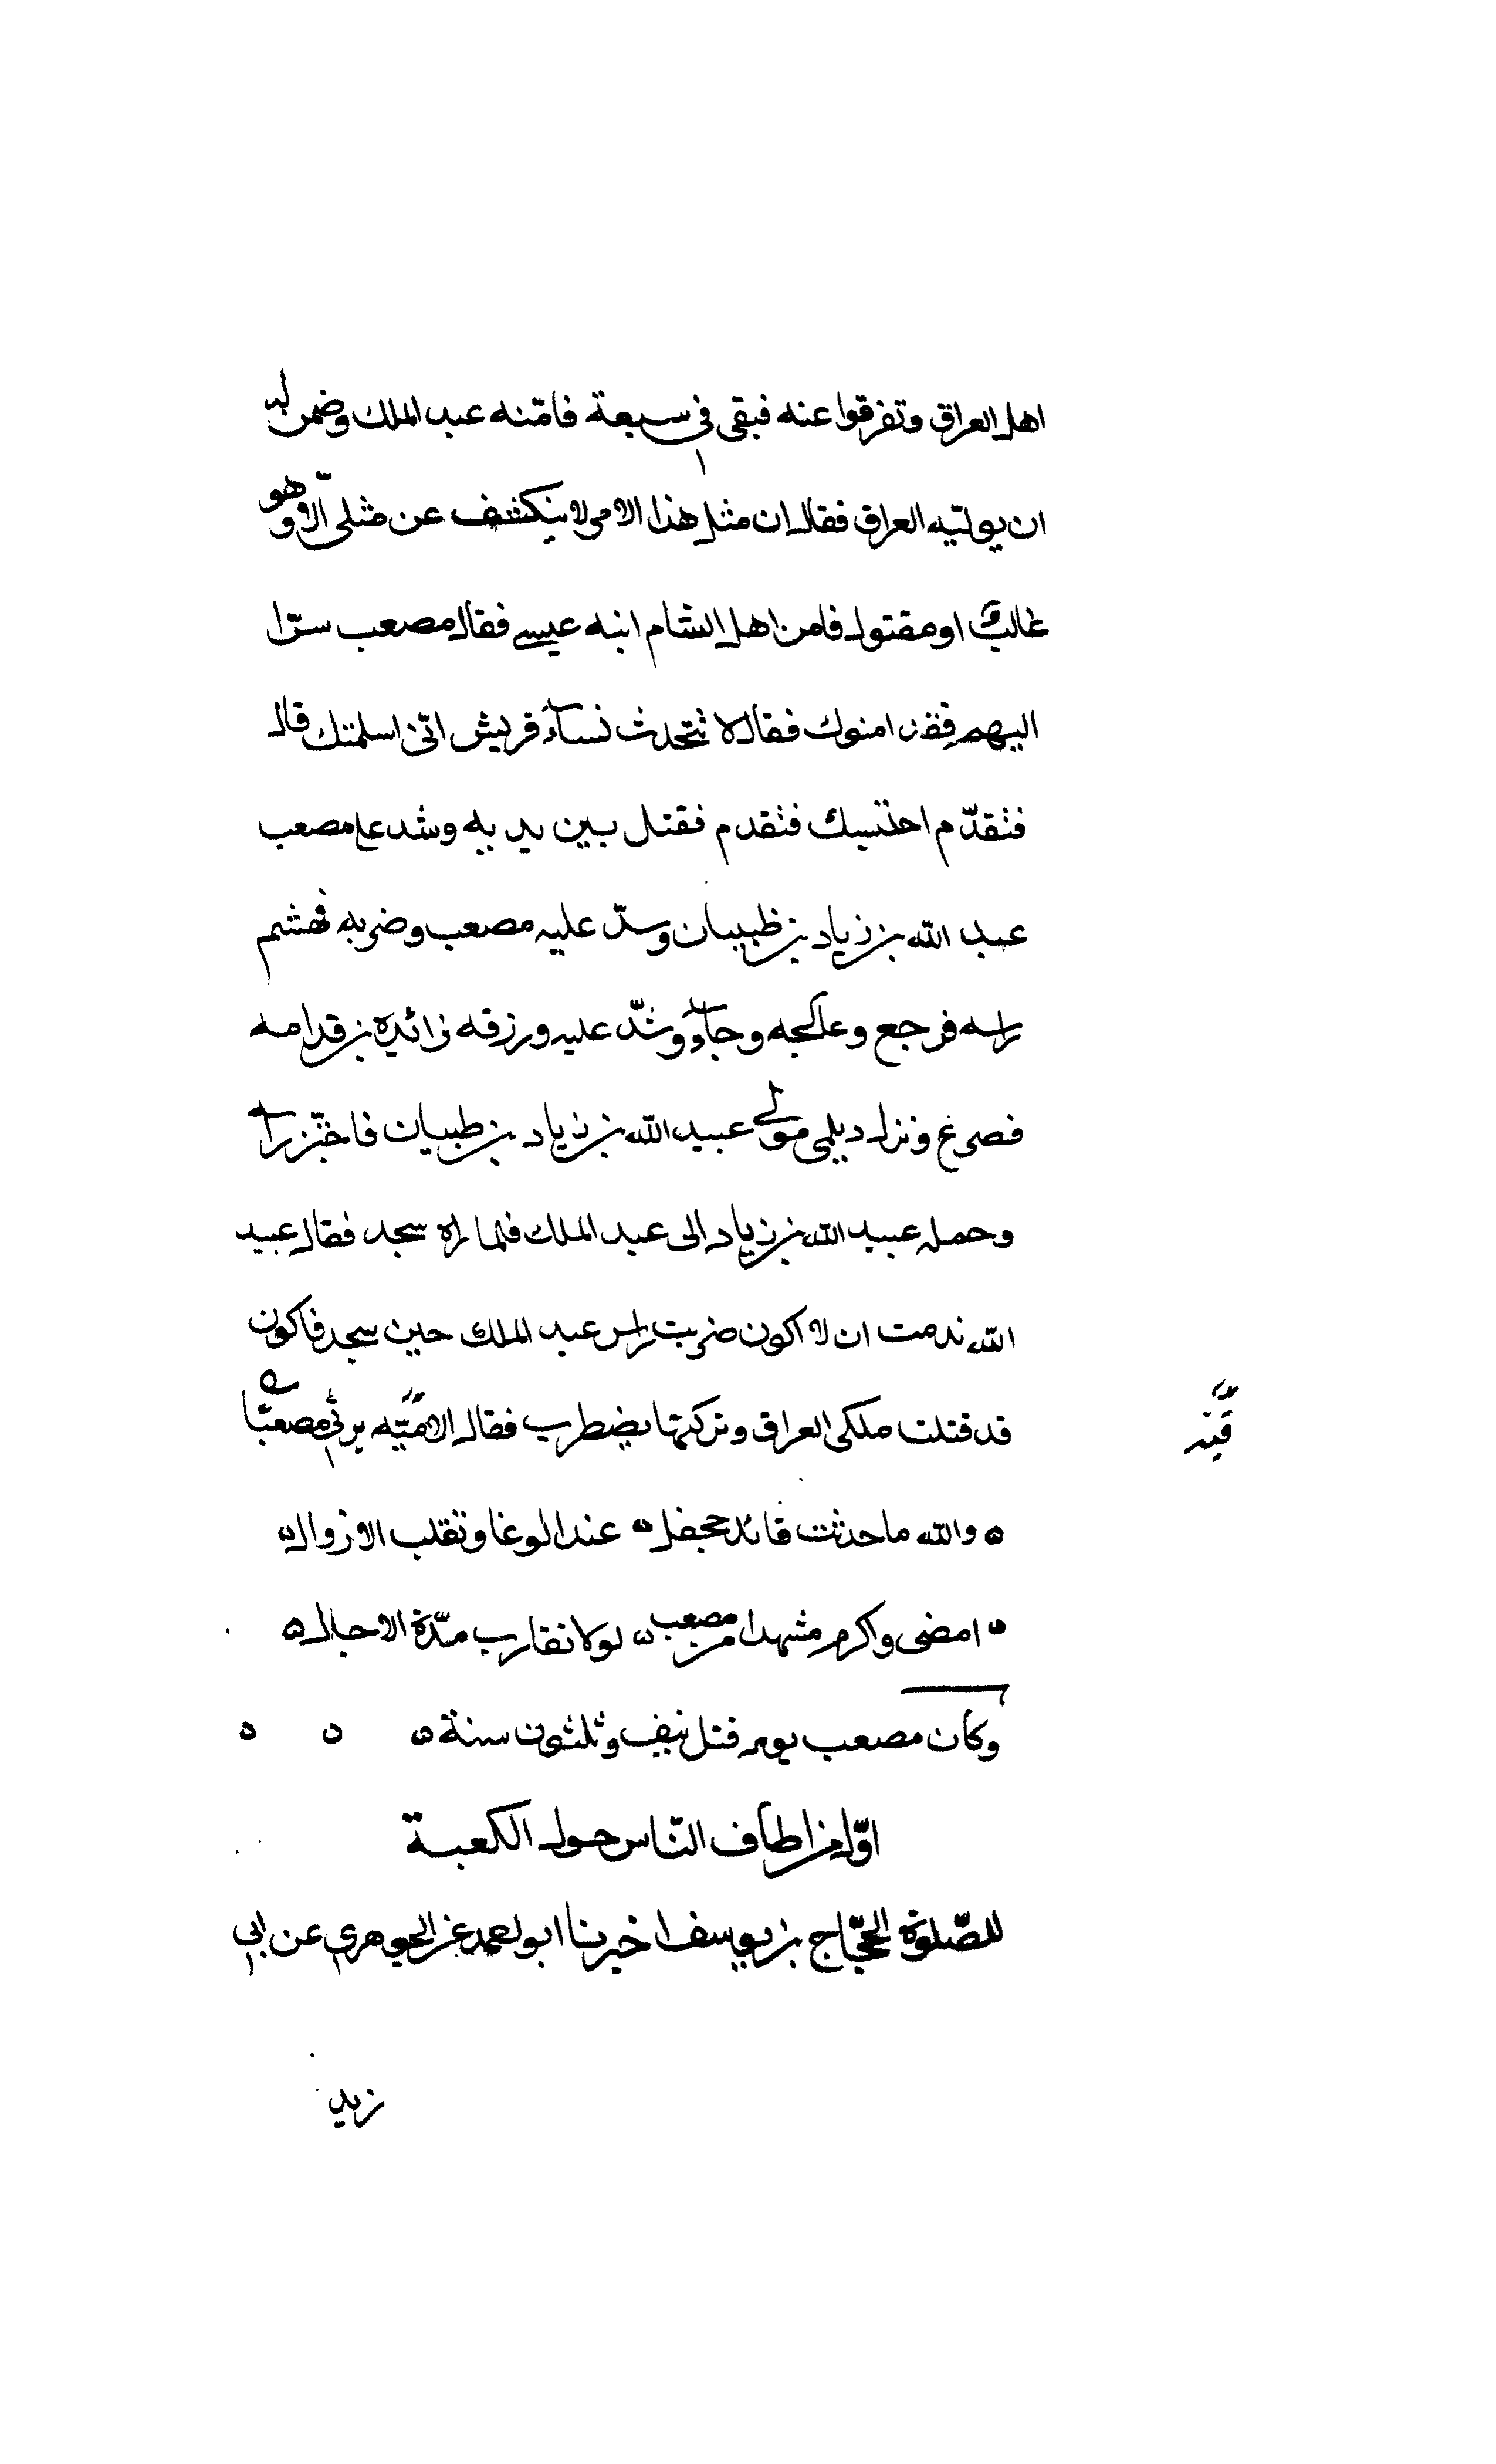 اهل العراق وتفرقوا عنه فبقى فى سبعة فامّنه عبد الملك وضمن له
ان يوليه العراق فقال ان مثل هذا الامر لا ينكشف عن مثلى الّا وهو
غالب او مقتول فامن اهل الشام ابنه عيسى فقال مصعب سرّا
اليهم فقد امنوك فقال لا تتحدث نسآء قريش انّى اسلمتك قال
فتقدّم احتسبك فتقدم فقتل بين يديه وشد على مصعب
عبيد الله بن زياد بن ظبيان وسدّ عليه مصعب وضربه فهشم
راسه فرجع وعالجه وجآء وشدّ عليه ورزقه زائدة بن قدامة
فصرع ونزل ديلمى مولى عبيد الله بن زياد بن ظبيان فاختز راسه
وحمله عبيد الله بن زياد الى عبد الملك فلما راه سجد فقال عبيد
الله ندمت ان لا اكون ضربت راس عبد الملك حين سجد فاكون
قد قتلت ملكى العراق وتركتها يضطرب فقال الاميّه يرثى مصعبًا
قيّة
ه والله ما حدثت قائد جحفل ه عند الوغا وتقلب الازوال ه
ه امضى واكرم مشهدا من مصعب ه لولا تقارب مدّة الاجال ه
وكان مصعب يوم قتل نيف وثلثون سنة ه ه ه
اوّل من اطاف النّاس حول الكعبة
للصّلوة الحجّاج بن يوسف اخبرنا ابو احمد عن الجوهرى عن ابى
زيد